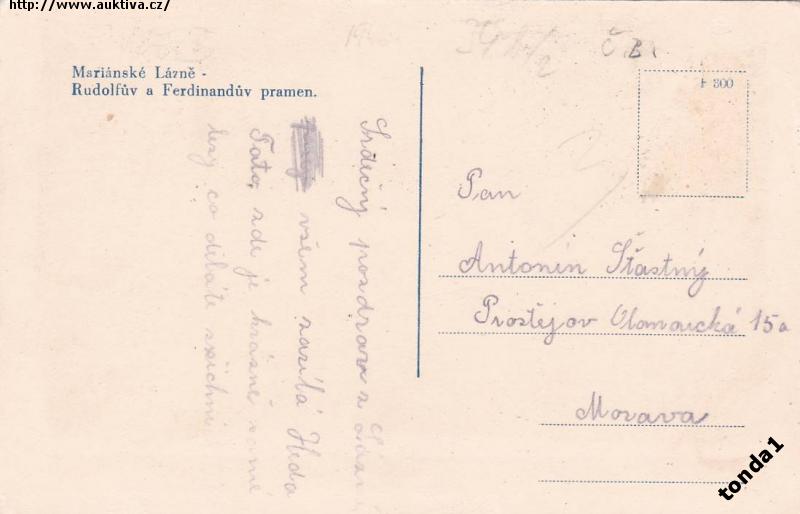 http://www.auktiva.cz/
Mariánské Lázně -
Rudolfův a Ferdinandův pramen.
F 300
Srdečný pozdrav z
všem zasílá
Tato, zde je krásné samé
lesy co děláte všichni
Pan
Antonín Šťastný
Prostějov Olomoucká 15a
Morava
tonda1